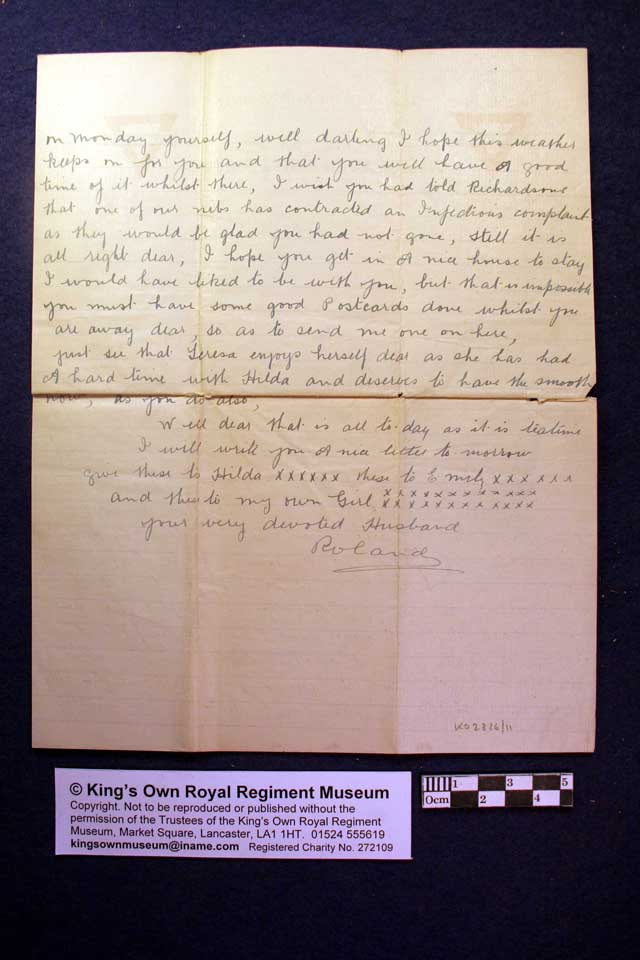 on Monday yourself, well darling I hope this weather
keeps on for you and that you will have A good
time of it whilst there, I wish you had told Richardsons
that one of our nibs has contracted an Infectious complaint
as they would be glad you had not gone, still it is
all right dear, I hope you get in A nice house to stay
I would have liked to be with you, but that is impossible
you must have some good Postcards done whilst you
are away dear, so as to send me one on here,
just see that Teresa enjoys herself dear as she has had
A hard time with Hilda and deserves to have the smooth
now, as you do also,
Well dear that is all to-day as it is teatime
I will write you A nice letter to-morrow
give these to Hilda xxxxxx these to Emily xxxxxx
and these to my own Girl xxxxxxxxxxxx
xxxxxxxxxxxx
your very devoted Husband
Roland
KO2336/11
© King's Own Royal Regiment Museum
Copyright. Not to be reproduced or published without the
permission of the Trustees of the King's Own Royal Regiment
Museum, Market Square, Lancaster, LA1 1HT. 01524 555619
kingsownmuseum@iname.com Registered Charity No. 272109
1 3 5
0cm 2 4